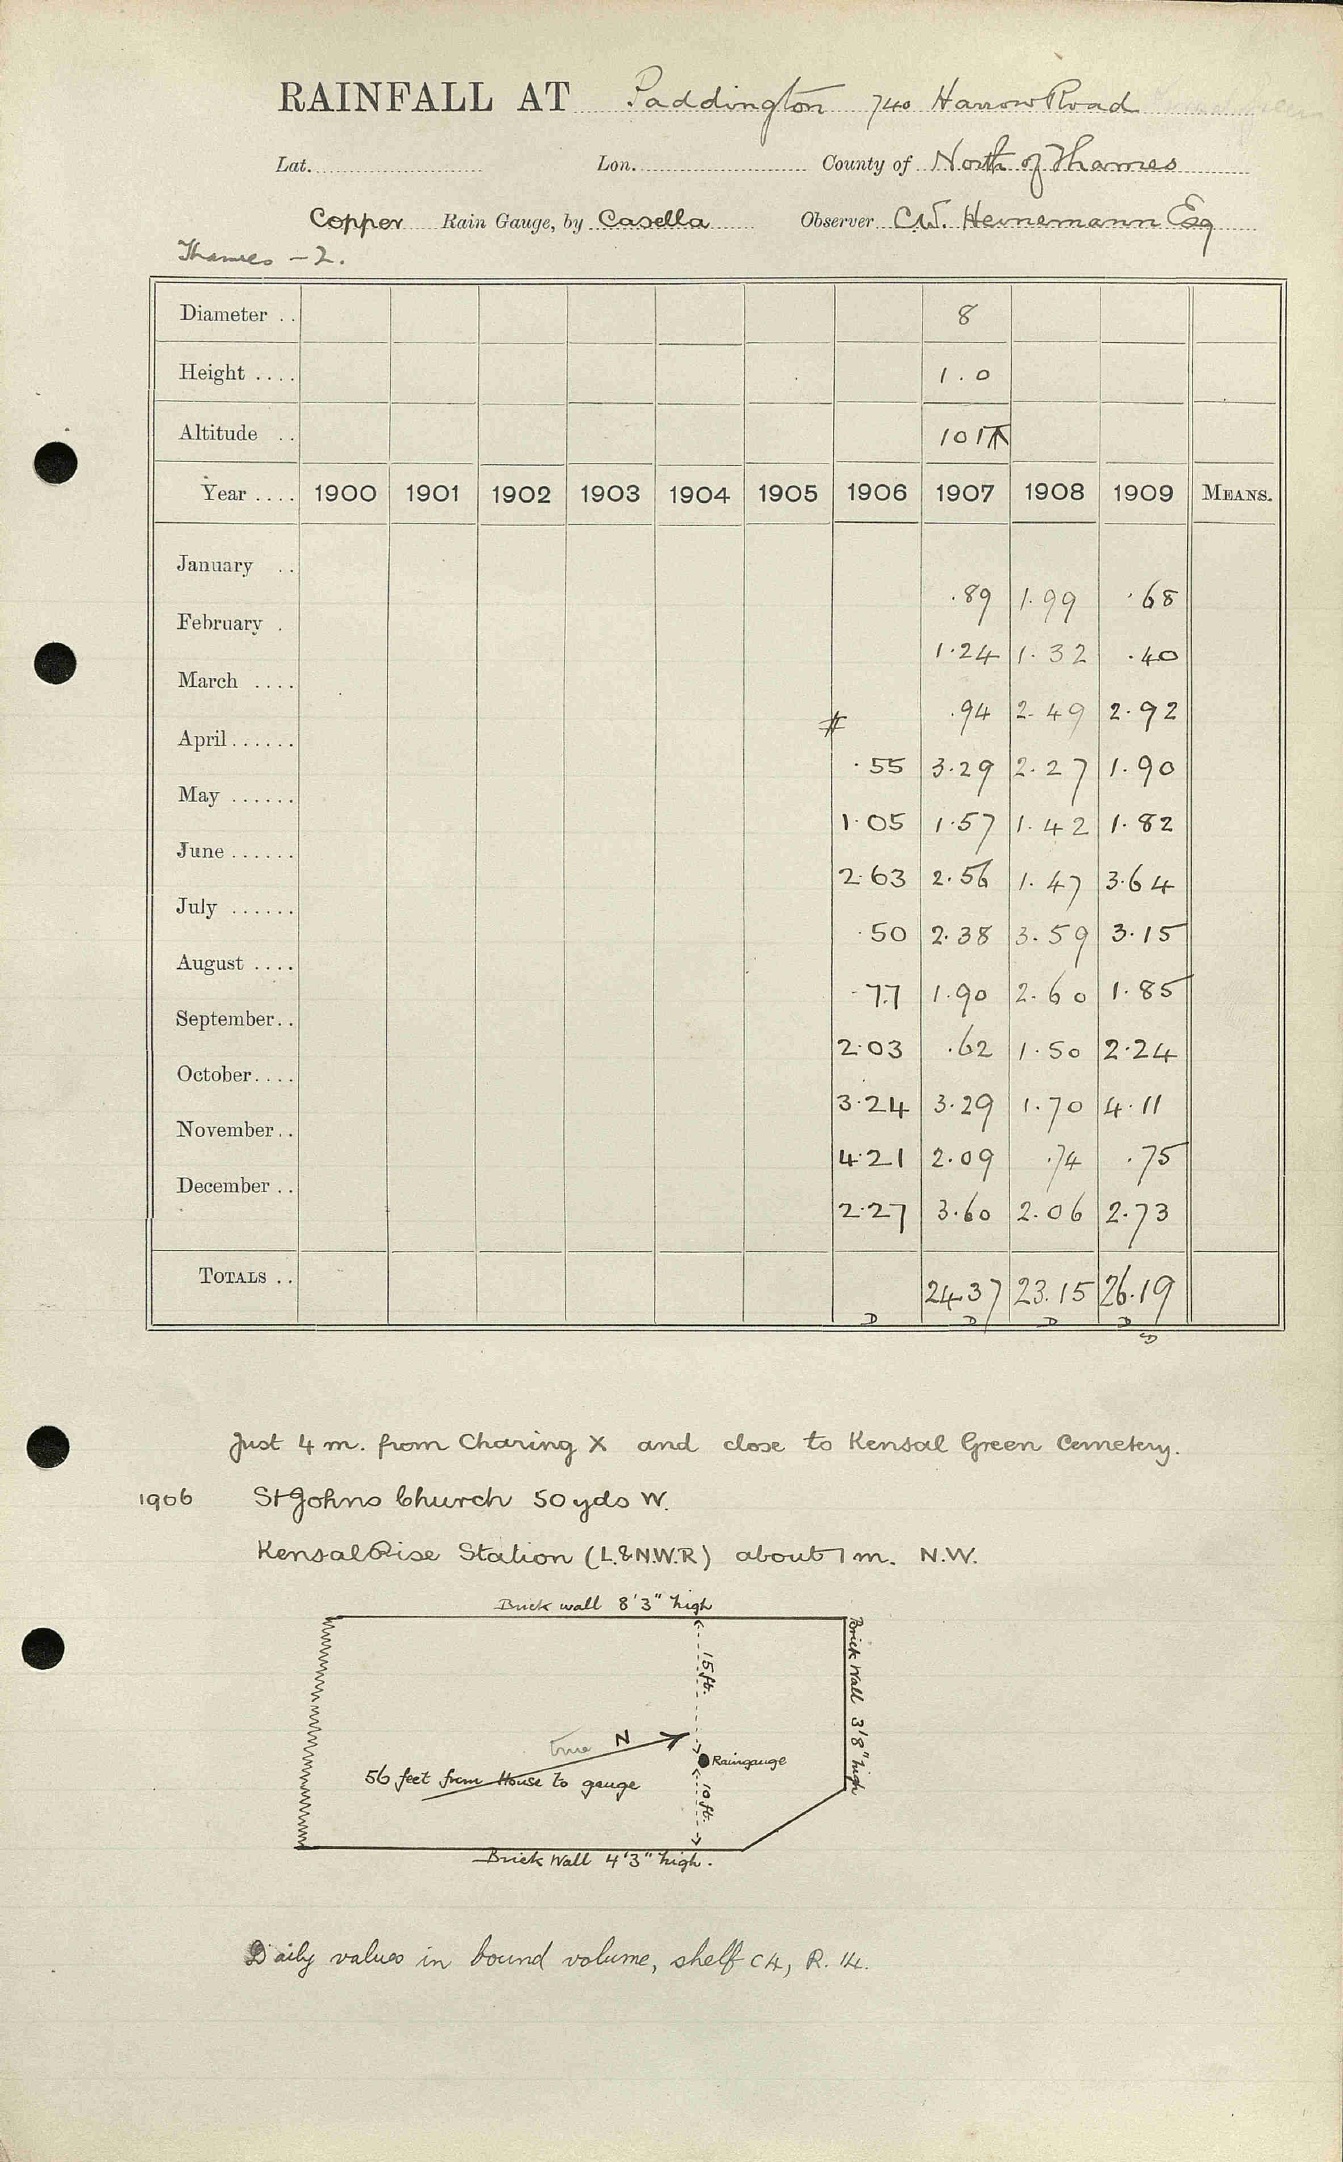 RAINFALL AT Paddington 740 Harrow Road
Lat. Lon. County of North of Thames
Copper Rain Gauge, by Casella Observer C.W. Heinemann Esq
Thames - 2.
Diameter .. 8
Height .... 1.0
Altitude .. 101
Year .... 1900 1901 1902 1903 1904 1905 1906 1907 1908 1909 MEANS.
January .. .89 1.99 .68
February . 1.24 1.32 .40
March .... .94 2.49 2.92
April ...... # .55 3.29 2.27 1.90
May ...... 1.05 1.57 1.42 1.82
June ...... 2.63 2.56 1.47 3.64
July ...... .50 2.38 3.59 3.15
August .... .77 1.90 2.60 1.85
September.. 2.03 .62 1.50 2.24
October.... 3.24 3.29 1.70 4.11
November.. 4.21 2.09 .74 .75
December .. 2.27 3.60 2.06 2.73
TOTALS .. 24.37 23.15 26.19
D D D D
D
Just 4 m. from Charing X and close to Kensal Green Cemetery.
1906 St Johns Church 50 yds W.
Kensal Rise Station (L.&N.W.R) about 1 m. N.W.
Brick wall 8'3" high
15 ft.
Brick Wall 3'8" high
true N
Raingauge
56 feet from House to gauge
10 ft.
Brick Wall 4'3" high.
Daily values in bound volume, shelf C4, R. 14.